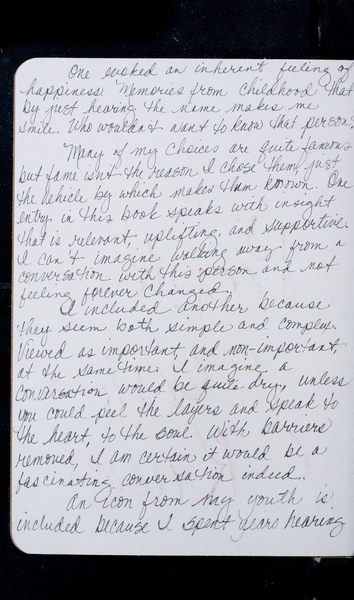 One evoked an inherent feeling of
happiness. Memories from childhood that
by just hearing the name makes me
smile. Who wouldn't want to know that person?
Many of my choices are quite famous
but fame isn't the reason I chose them, just
the vehicle by which makes them known. One
entry in this book speaks with insight
that is relevant, uplifting, and supportive.
I can't imagine walking away from a
conversation with this person and not
feeling forever changed.
I included another because
they seem both simple and complex.
Viewed as important, and non-important,
at the same time. I imagine a
conversation would be quite dry, unless
you could peel the layers and speak to
the heart, to the soul. With barriers
removed, I am certain it would be a
fascinating conversation indeed.
An icon from my youth is
included because I spent years hearing